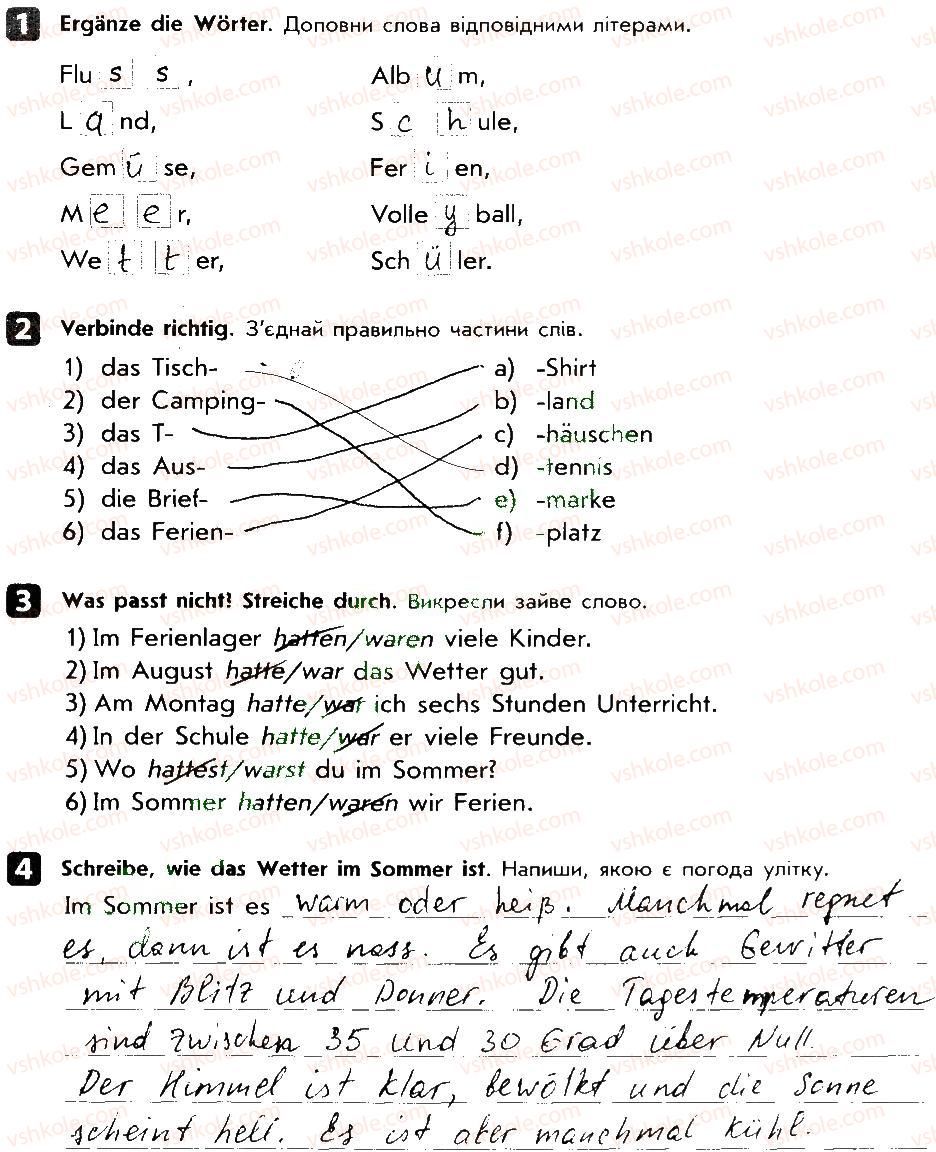 1 Ergänze die Wörter. Доповни слова відповідними літерами.
Flu s s , Alb u m,
L a nd, S c h ule,
Gem ü se, Fer i en,
M e e r, Volle y ball,
We t t er, Sch ü ler.
2 Verbinde richtig. З'єднай правильно частини слів.
1) das Tisch- a) -Shirt
2) der Camping- b) -land
3) das T- c) -häuschen
4) das Aus- d) -tennis
5) die Brief- e) -marke
6) das Ferien- f) -platz
3 Was passt nicht? Streiche durch. Викресли зайве слово.
1) Im Ferienlager hatten/waren viele Kinder.
2) Im August hatte/war das Wetter gut.
3) Am Montag hatte/war ich sechs Stunden Unterricht.
4) In der Schule hatte/war er viele Freunde.
5) Wo hattest/warst du im Sommer?
6) Im Sommer hatten/waren wir Ferien.
4 Schreibe, wie das Wetter im Sommer ist. Напиши, якою є погода улітку.
Im Sommer ist es warm oder heiß. Manchmal regnet
es, dann ist es nass. Es gibt auch Gewitter
mit Blitz und Donner. Die Tagestemperaturen
sind zwischen 35 und 30 Grad über Null.
Der Himmel ist klar, bewölkt und die Sonne
scheint hell. Es ist aber manchmal kühl.